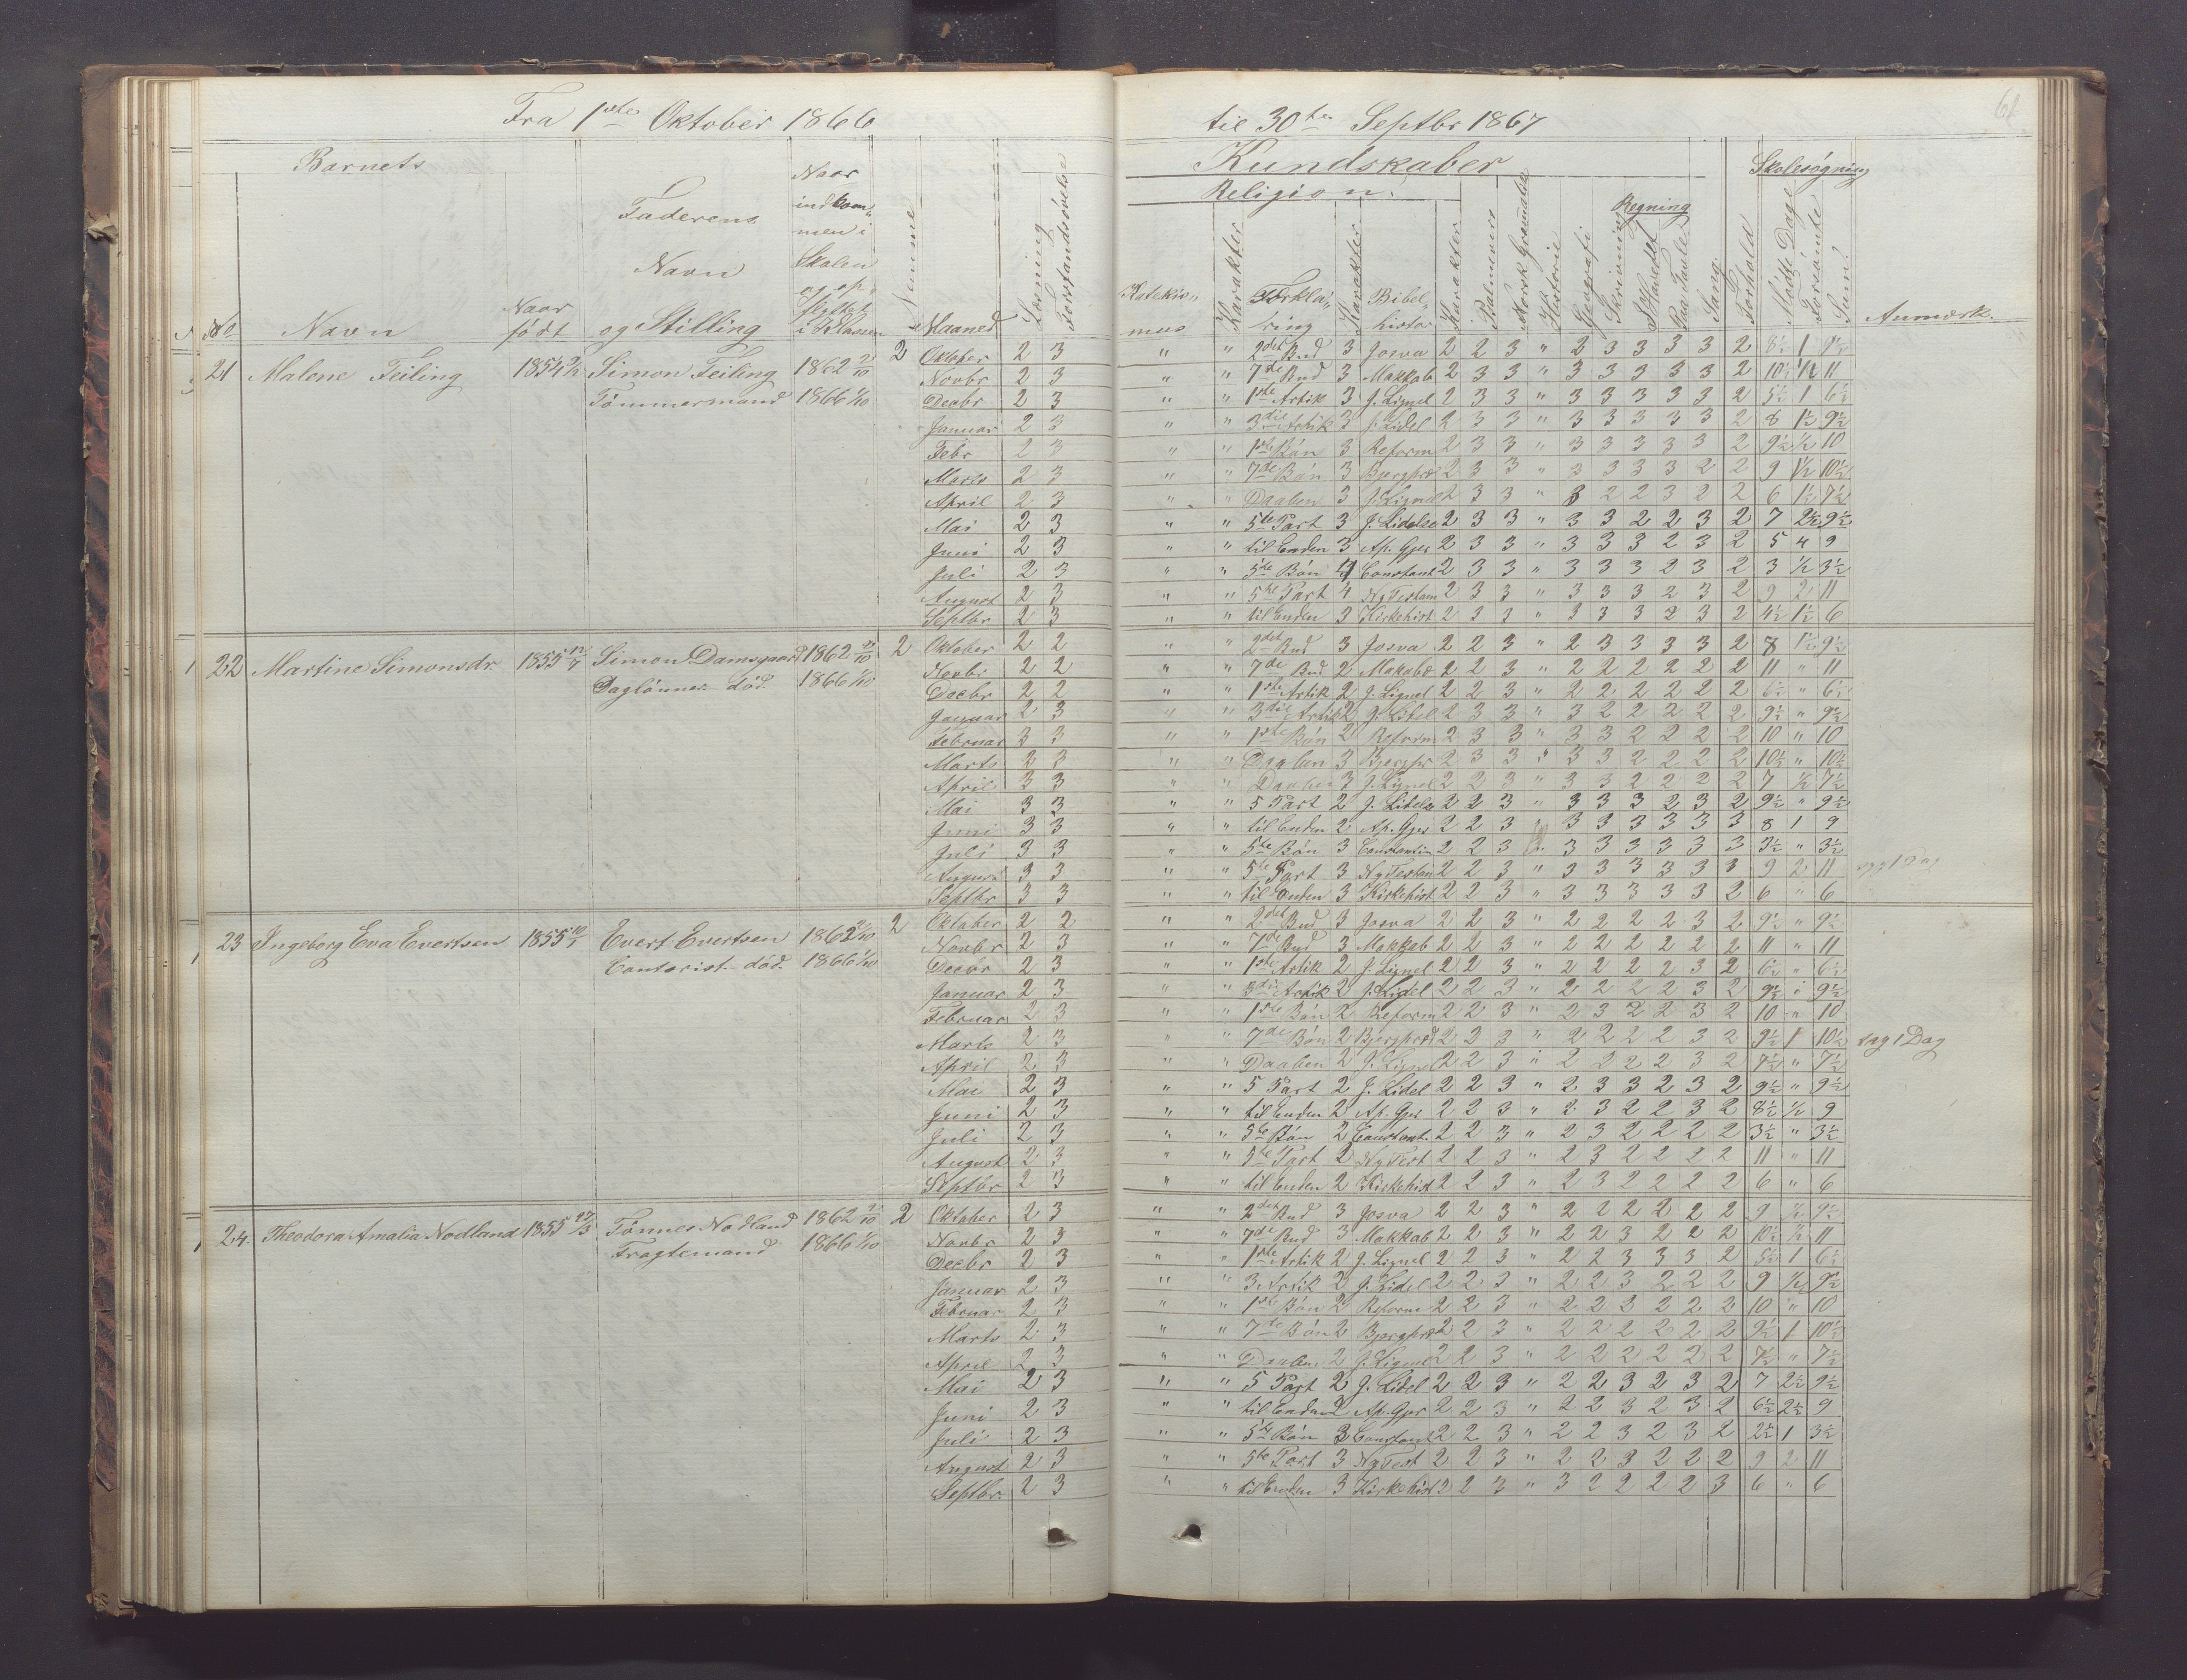 Fra 1ste Oktober 1866 til 30te Septbr 1867
61
Barnets
Kundskaber
Skolesøgning
Religion.
Regning
No Navn Naar født Faderens Navn og Stilling Naar indkommen i Skolen og opflyttet i Klassen Nemme Maaned Læsning Forstandsøvelse
Katekismus Karakter Forklaring Karakter Bibelhistor Karakter Psalmevers Norsk Gramatik Historie Geografi Skrivning I Hovedet Paa Tavle Sang Forhold Mødte Dage Forsømte Sum Anmærk.
21 Malene Feiling 1854 Simon Feiling 1862 2 Oktober 2 3 " " 2det Bud 3 Josva 2 2 3 " 2 3 3 3 3 2 8½ 1 9½
Tømmermand 1866 1/10
Novbr 2 3 " " 7de Bud 3 Makkab 2 3 3 " 3 3 3 3 3 2 10½ ½ 11
Decbr 2 3 " " 1ste Artik 3 J. Lignel 2 3 3 " 3 3 3 3 3 2 5½ 1 6½
Januar 2 3 " " 3die Artik 3 J. Lidel 2 3 3 " 3 3 3 3 3 2 8 1½ 9½
Febr 2 3 " " 1ste Bøn 3 Reform 2 3 3 " 3 3 3 3 3 2 9½ ½ 10
Marts 2 3 " " 7de Bøn 3 Bjergpræ 2 3 3 " 3 3 3 3 2 2 9 1½ 10½
April 2 3 " " Daaben 3 J. Lignel 2 3 3 " 3 2 2 3 2 2 6 1½ 7½
Mai 2 3 " " 5te Part 3 J. Lidelse 2 3 3 " 3 3 2 2 3 2 7 2½ 9½
Juni 2 3 " " til Enden 3 Ap. Gjer 2 3 3 " 3 3 3 2 3 2 5 4 9
Juli 2 3 " " 5te Bøn 4 Constant 2 3 3 " 3 3 3 2 3 2 3 ½ 3½
August 2 3 " " 5te Part 4 Ny Testam 2 3 3 " 3 3 3 2 3 2 9 2 11
Septbr 2 3 " " til Enden 3 Kirkehist 2 3 3 " 3 3 3 2 3 2 4½ 1½ 6
22 Martine Simonsdr. 1855 Simon Damsgaard 1862 2 Oktober 2 2 " " 2det Bud 3 Josva 2 2 3 " 2 3 3 3 3 2 8 1½ 9½
Daglønner død. 1866 1/10
Novbr 2 2 " " 7de Bud 2 Makabæ 2 2 3 " 2 2 2 2 2 2 11 " 11
Decbr 2 2 " " 1ste Artik 2 J. Lignel 2 2 3 " 2 2 2 2 2 2 6½ " 6½
Januar 2 3 " " 3die Artik 2 J. Lidel 2 3 3 " 3 2 2 2 2 2 9½ " 9½
Februar 3 3 " " 1ste Bøn 2 Reform 2 3 3 " 3 3 2 2 2 2 10 " 10
Marts 3 3 " " Daaben 3 Bjergpr 2 3 3 " 3 3 2 2 2 2 10½ " 10½
April 3 3 " " Daaben 3 J. Lignel 2 2 3 " 3 3 2 2 2 2 7 ½ 7½
Mai 3 3 " " 5 Part 2 J. Lidelse 2 2 3 " 3 3 3 2 3 2 9½ " 9½
Juni 3 3 " " til Enden 2 Ap. Gjer 2 2 3 " 3 3 3 3 3 3 8 1 9
Juli 3 3 " " 5te Bøn 3 Constantin 2 2 3 " 3 3 3 3 3 3 3½ " 3½
August 3 3 " " 5te Part 3 Ny Testam 2 2 3 " 3 3 3 3 3 3 9 2 11 syg 1 Dag
Septbr 3 3 " " til Enden 3 Kirkehist 2 2 3 " 3 3 3 3 3 2 6 " 6
23 Ingeborg Eva Evertsen 1855 Evert Evertsen 1862 2 Oktober 2 2 " " 2det Bud 3 Josva 2 2 3 " 2 2 2 2 3 2 9½ " 9½
Contorist død. 1866 1/10
Novbr 2 3 " " 7de Bud 3 Makkab 2 2 3 " 2 2 2 2 2 2 11 " 11
Decbr 2 3 " " 1ste Artik 2 J. Lignel 2 2 3 " 2 2 2 2 3 2 6½ " 6½
Januar 2 3 " " 3die Artik 2 J. Lidel 2 2 3 " 2 2 2 2 3 2 9½ " 9½
Februar 2 3 " " 1ste Bøn 2 Reform 2 2 3 " 2 3 2 2 3 2 10 " 10
Marts 2 3 " " 7de Bøn 2 Bjergpræd 2 2 3 " 2 2 2 2 3 2 9½ 1 10½ syg 1 Dag
April 2 3 " " Daaben 2 J. Lignel 2 2 3 " 2 2 2 2 3 2 7½ " 7½
Mai 2 3 " " 5 Part 2 J. Lidel 2 2 3 " 2 3 3 2 3 2 9½ " 9½
Juni 2 3 " " til Enden 2 Ap. Gjer 2 2 3 " 2 3 2 2 3 2 8½ ½ 9
Juli 2 3 " " 5te Bøn 2 Constant. 2 2 3 " 2 3 2 2 2 2 3½ " 3½
August 2 3 " " 5te Part 2 Ny Test 2 2 3 " 2 3 2 2 2 2 11 " 11
Septbr 2 3 " " til Enden 2 Kirkehist 2 2 3 " 2 3 2 2 2 2 6 " 6
24. Theodora Amalia Nodland 1855 27/3 Tønnes Nodland 1862 2 Oktober 2 3 " " 2det Bud 3 Josva 2 2 3 " 2 2 2 2 2 2 9 ½ 9½
Fragtemand 1866 1/10
Novbr 2 3 " " 7de Bud 3 Makkab 2 2 3 " 2 2 3 2 2 2 10½ ½ 11
Decbr 2 3 " " 1ste Artik 2 J. Lignel 2 2 3 " 2 2 3 3 3 2 5½ 1 6½
Januar 2 3 " " 3 Artik 2 J. Lidel 2 2 3 " 2 2 3 2 2 2 9 ½ 9½
Februar 2 3 " " 1ste Bøn 2 Reform 2 2 3 " 2 2 2 2 2 2 10 " 10
Marts 2 3 " " 7de Bøn 2 Bjergpræ 2 2 3 " 2 2 2 2 2 2 9½ 1 10½
April 2 3 " " Daaben 2 J. Lignel 2 2 3 " 2 2 2 2 2 2 7½ " 7½
Mai 2 3 " " 5 Part 2 J. Lidel 2 2 3 " 2 2 3 2 3 2 7 2½ 9½
Juni 2 3 " " til Enden 2 Ap. Gjer 2 2 3 " 2 2 3 2 3 2 6½ 2½ 9
Juli 2 3 " " 5te Bøn 3 Constant 2 2 3 " 2 2 3 2 3 2 2½ 1 3½
August 2 3 " " 5te Part 3 Ny Test 2 2 3 " 2 2 3 2 2 2 9 2 11
Septbr. 2 3 " " til Enden 3 Kirkehist 2 2 3 " 3 2 2 2 2 3 6 " 6